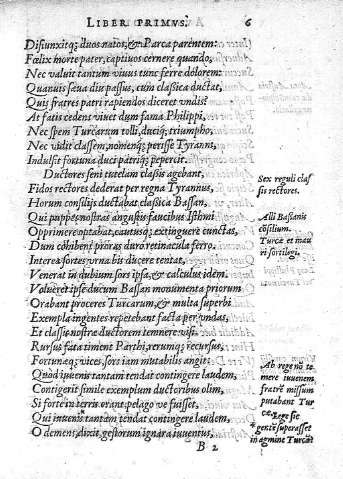 LIBER PRIMVS. 6
Disiunxitq; duos natos, & Parca parentem:
Fœlix morte pater, captiuos cernere quando,
Nec valuit tantum viuus tunc ferre dolorem:
Quamuis sæua diu passus, cum classica ductat,
Quis fratres patri rapiendos diceret vndis?
At fatis cedens viuet dum fama Philippi,
Nec spem Turcarum tolli, duciq; triumpho,
Nec vidit classem, nomenq; perisse Tyranni,
Indulsit fortuna duci patriq; pepercit.
Ductores seni tutelam classis agebant,
Fidos rectores dederat per regna Tyrannus,
Horum consilijs ductabat classica Bassan,
Qui puppes nostras angustis faucibus Isthmi
Opprimere optabat, cautusq; extinguere cunctas,
Dum cohibent proras duro retinacula ferro.
Interea sortes vrna bis ducere tentat,
Venerat in dubium sors ipsa, & calculus idem.
Voluere ipse ducum Bassan monumenta priorum
Orabant proceres Turcarum, & multa superbi
Exempla ingentes repetebant facta per vndas,
Et classis nostræ ductorem temnere visi.
Rursus fata timent Parthi, rerumq; recursus,
Fortunæq; vices, sors iam mutabilis angit:
Quod iuuenis tantam tendat contingere laudem,
Contigerit simile exemplum ductoribus olim,
Si forte in terris erant pelago ve fuisset,
Qui iuuenis tantam tendat contingere laudem,
O demens, dixit, gestorum ignara iuuentus,
B 2
Sex reguli clas
sis rectores.
Alli Basianis
cōsilium.
Turcæ et mau
ri sortilegi.
Ab rege nō te
mere iuuenem
fratrē missum
putabant Tur
cæ. Lege sie
gentē superasset
in agmine Turcæ